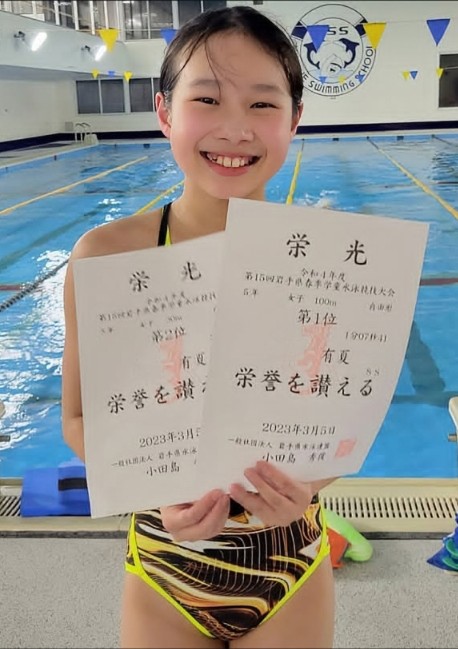 SS
SWIMMING SCHOOL
栄光
令和4年度
第15回岩手県春季学童水泳競技大会
5年 女子 100m 自由形
第1位
1分07秒41
有夏
SS
栄誉を讃える
2023年3月5日
一般社団法人 岩手県水泳連盟
小田島
栄光
令和4年度
第15回岩手県春季学童水泳競技
5年 女子 50m
第2位
有夏
栄誉を讃え
2023年3月5
一般社団法人 岩手県水泳
小田島